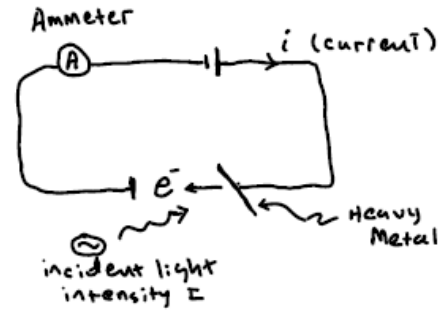 Ammeter
A
i (current)
e-
Heavy
Metal
incident light
intensity I